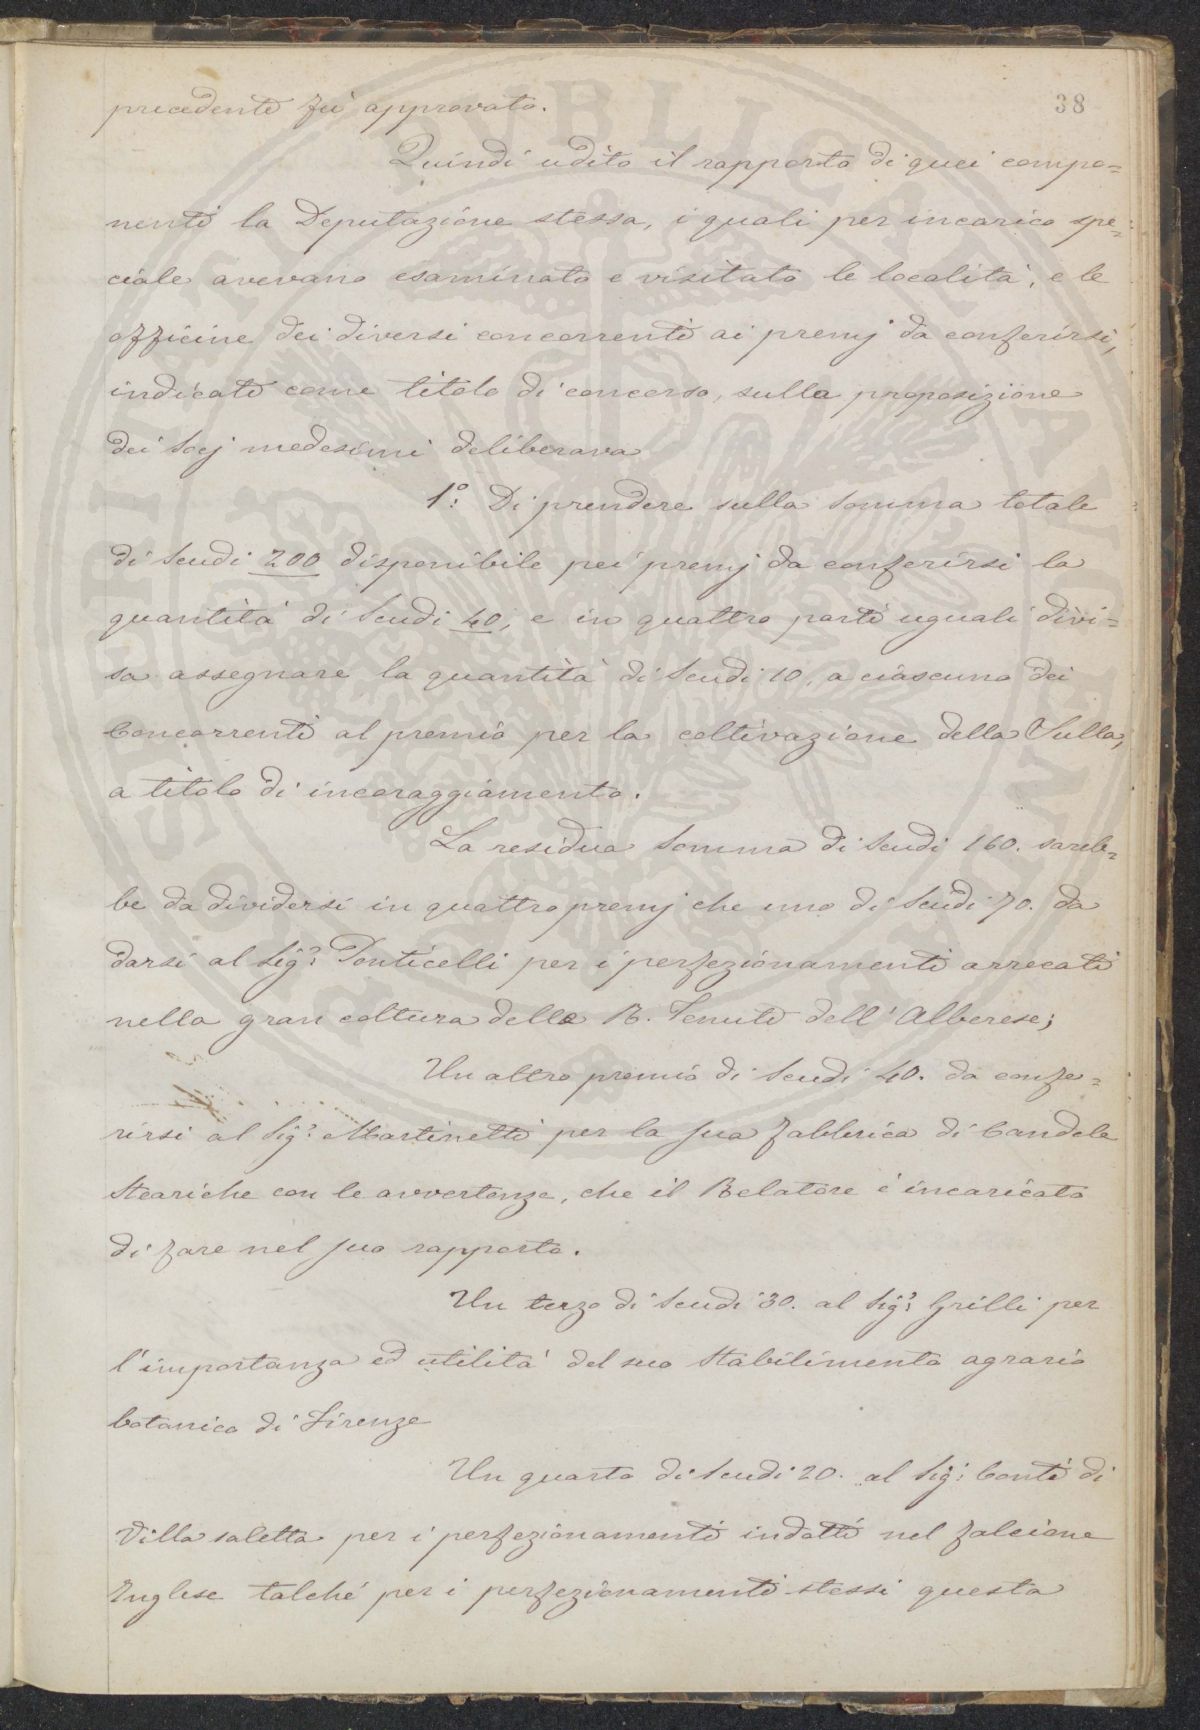 38
precedente fù approvato.
Quindi udito il rapporto di quei compo=
nenti la Deputazione stessa, i quali per incarico spe=
ciale avevano esaminato e visitato le località, e le
officine dei diversi concorrenti ai premj da conferirsi,
indicate come titolo di concorso, sulla proposizione
dei Socj medesimi deliberava
1º: Di prendere sulla Somma totale
di Scudi 200 disponibile pei premj da conferirsi la
quantità di Scudi 40, e in quattro parti uguali divi=
sa assegnare la quantità di Scudi 10, a ciascuno dei
Concorrenti al premio per la coltivazione della Sulla,
a titolo di incoraggiamento.
La residua Somma di Scudi 160. sareb=
be da dividersi in quattro premj che uno di Scudi 70. da
darsi al Sigr: Ponticelli per i perfezionamenti arrecati
nella gran coltura della R. Tenuta dell'Alberese;
Un altro premio di Scudi 40. da confe=
rirsi al Sigr: Martinetti per la sua fabbrica di Candele
Steariche con le avvertenze, che il Relatore è incaricato
di fare nel suo rapporto.
Un terzo di Scudi 30. al Sigr: Grilli per
l'importanza ed utilità del suo Stabilimento agrario
botanico di Firenze
Un quarto di Scudi 20. al Sig: Conti di
Villa saletta per i perfezionamenti indotti nel falcione
Inglese talché per i perfezionamenti stessi questa